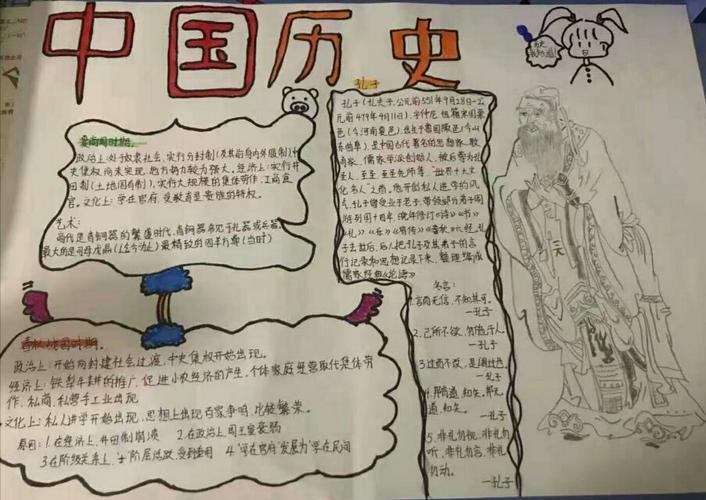 中国历史
夏商周时期。
政治上:处于奴隶社会,实行分封制(及其前身内外服制),中
史集权尚未出现,地方势力较为强大。经济上:实行井
田制(土地国有制),实行大规模的集体劳作,工商食
官。文化上:学在官府,受教育是贵族的特权。
艺术:
商代是青铜器的繁盛时代,青铜器多见于礼器或兵器,
最大的是司母戊鼎(迄今为止)最精致的四羊方尊(当时)
春秋战国时期。
政治上:开始向封建社会过渡,中史集权开始出现。
经济上:铁犁牛耕的推广,促进小农经济的产生,个体家庭经营取代集体劳
作,私商,私营手工业出现
文化上:私人讲学开始出现,思想上出现百家争鸣,比较繁荣。
原因:1.在经济上,井田制崩溃 2.在政治上周王室衰弱
3.在阶级关系上,士阶层活跃,受到重用 4."学在官府"发展为"学在民间
孔子
孔子(孔夫子,公元前551年9月28日-公
元前479年4月11日),字仲尼,祖籍宋国栗
邑(今河南夏邑),出生于鲁国陬邑(今山
东曲阜),是中国古代著名的思想家、教
育家,儒家学派创始人,被后尊为孔
圣人,至圣,至圣先师等,"世界十大文
化名人"之首,他开创私人讲学的风
气,孔子曾受业于老子,带领部分弟子周
游列国十四年,晚年修订《诗》《书》
《礼》《乐》《易传》《春秋》六经,孔
子去世后,后人把孔子及其弟子的言
行记录和思想记录下来,整理编成
儒家经典《论语》
名言:
1.言而无信,不知其可。
—孔子
2.己所不欲,勿施于人。
—孔子
3.过而不改,是谓过也。
—孔子
4.
—孔子
5.非礼勿视,非礼勿
听,非礼勿言,非礼
勿动。
—孔子